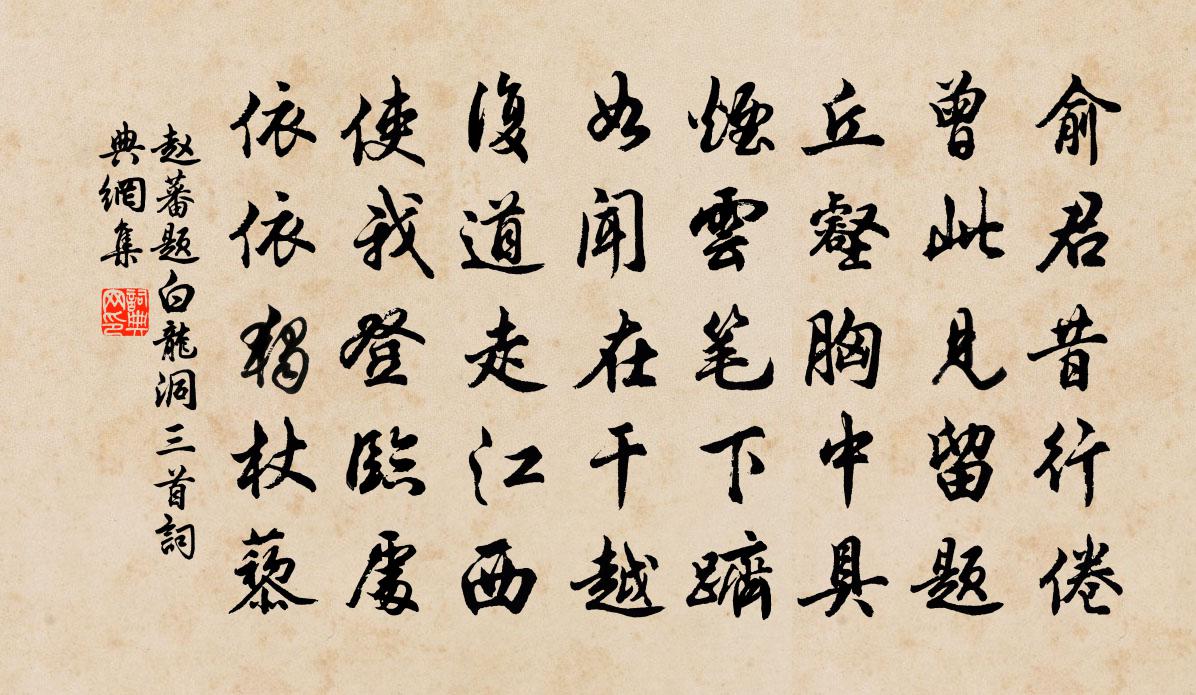 俞君昔行倦
曾此見留題
丘壑胸中具
煙雲笔下躋
如聞在干越
復道走江西
使我登臨處
依依獨杖藜
赵蕃题白龍洞三首詞
典網集
詞典
网印